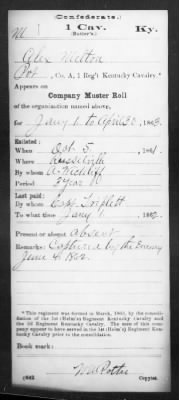 (Confederate.)
M 1 Cav. Ky.
(Butler's.)
Alex Melton
Pvt, Co. A, 1 Reg't Kentucky Cavalry.*
Appears on
Company Muster Roll
of the organization named above,
for Jany 1 to April 30, 1863.
Enlisted:
When Oct 5, 1861.
Where Russellville
By whom
Period 3 years
Last paid:
By whom Capt. Triplett
To what time Jany 1, 1862.
Present or absent Absent
Remarks: Captured by the Enemy
June 4, 1862.
*This regiment was formed in March, 1863, by the consolidation
of the 1st (Helm's) Regiment Kentucky Cavalry and
the 3d Regiment Kentucky Cavalry. The
members of this company appear to have served in the 1st (Helm's) Regiment Kentucky
Cavalry prior to the consolidation.
Book mark:
(642) Copyist.